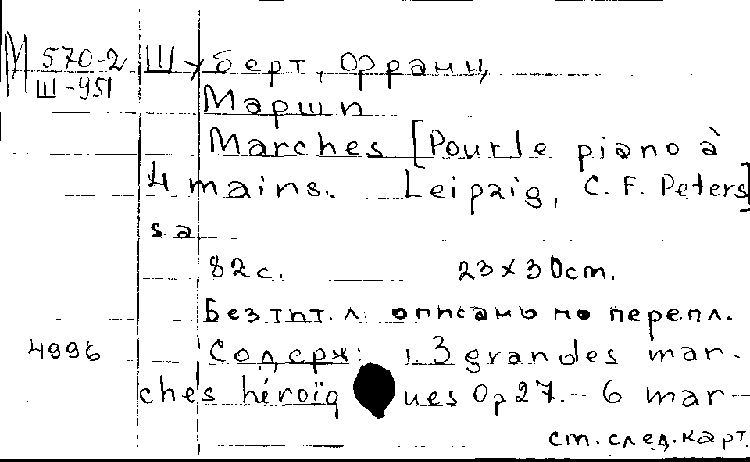 М 570-2 Шуберт, Франц
Ш-951
Марши
Marches [Pour le piano à
4 mains. Leipzig, C. F. Peters]
s a
82 с. 23x30 cm.
Без тит. л. описано по перепл.
4996 Содерж: 1. 3 grandes mar-
ches héroïques Op 27. - 6 mar-
см. след. карт.